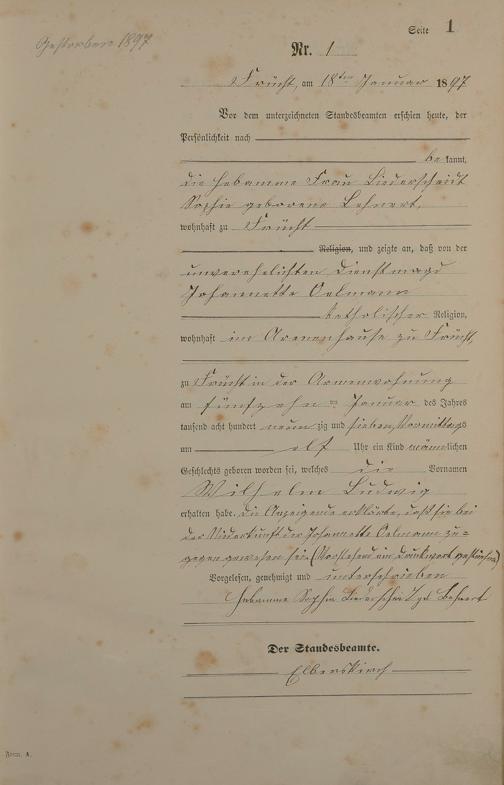 Seite 1
Gestorben 1897
Nr. 1
Frücht, am 18ten Januar 1897
Vor dem unterzeichneten Standesbeamten erschien heute, der
Persönlichkeit nach
be kannt,
die Hebamme Frau Liederscheidt
Sophie geborene Lehnert,
wohnhaft zu Frücht
Religion, und zeigte an, daß von der
unverehelichten Dienstmagd
Johannette Oelmann
katholischer Religion,
wohnhaft im Armenhause zu Frücht,
zu Frücht in der Armenwohnung
am fünfzehn = Januar des Jahres
tausend acht hundert neun zig und sieben, Vormittags
um elf Uhr ein Kind männlichen
Geschlechts geboren worden sei, welches die Vornamen
Wilhelm Ludwig
erhalten habe. Die Anzeigende erklärte, daß sie bei
der Niederkunft der Johannette Oelmann zu=
gegen gewesen sei. (Vorstehend ein Druckwort gestrichen)
Vorgelesen, genehmigt und unterschrieben
Hebamme Sophie Liederscheidt gb Lehnert
Der Standesbeamte.
Elberskirch
Form. A.